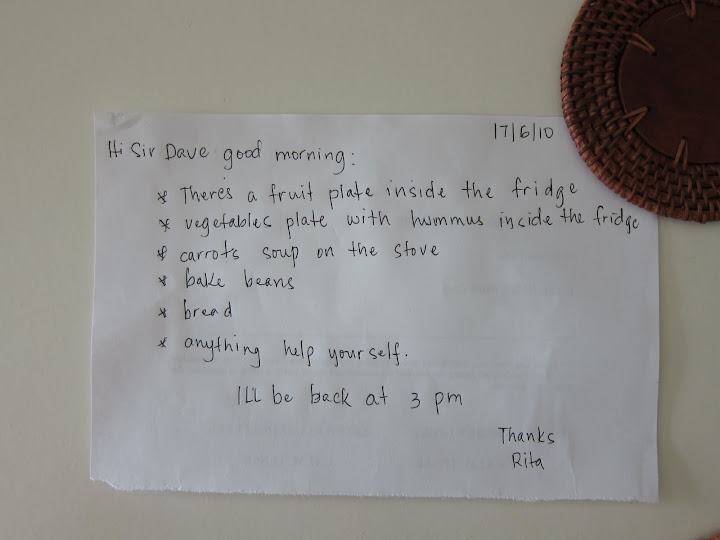 17/6/10
Hi Sir Dave good morning:
* There's a fruit plate inside the fridge
* vegetables plate with hummus inside the fridge
* carrots soup on the stove
* bake beans
* bread
* anything help yourself.
I'll be back at 3 pm
Thanks
Rita